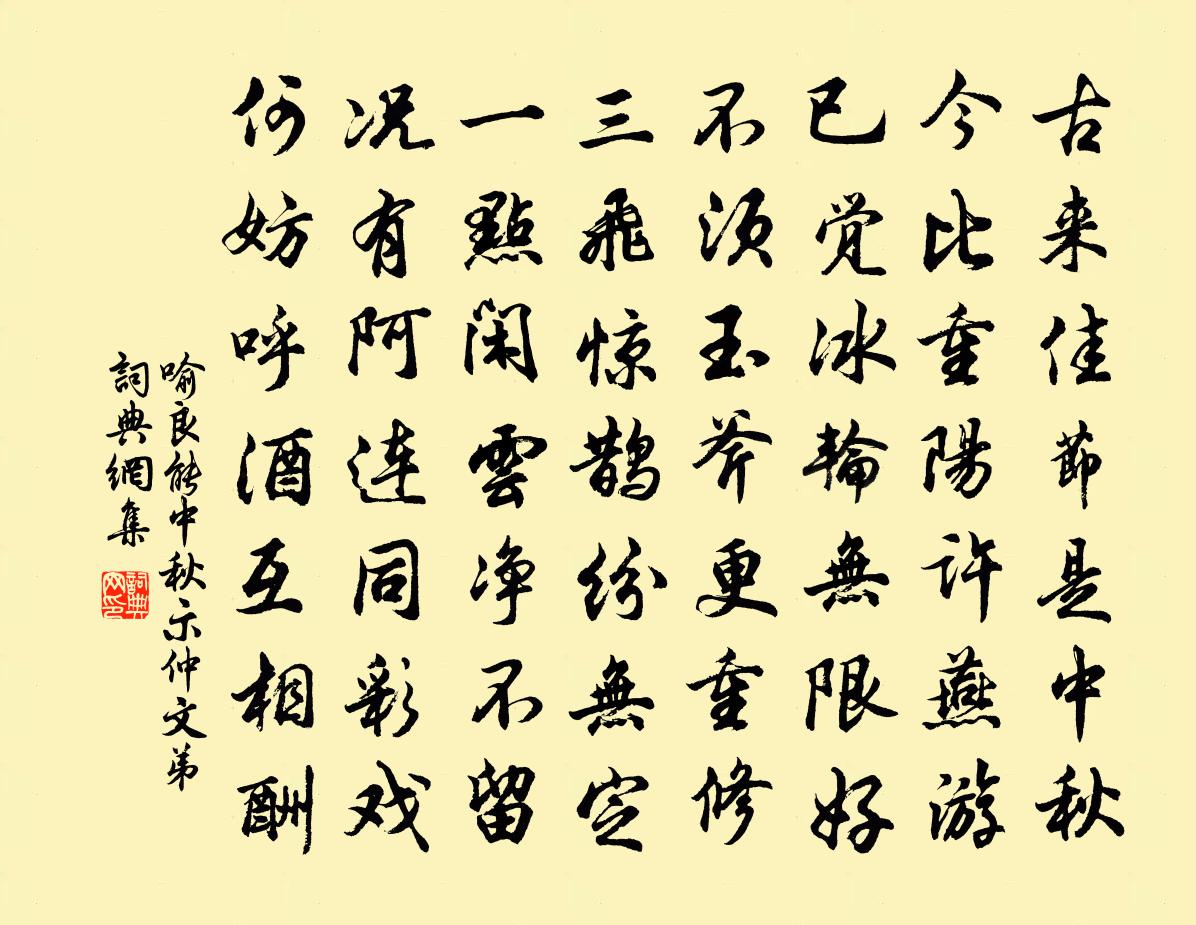 古来佳節是中秋
今比重陽许燕游
已觉冰輪無限好
不须玉斧更重修
三飛惊鹊纷無定
一點闲雲净不留
况有阿连同彩戏
何妨呼酒互相酬
喻良能中秋示仲文弟
詞典網集
詞典网印